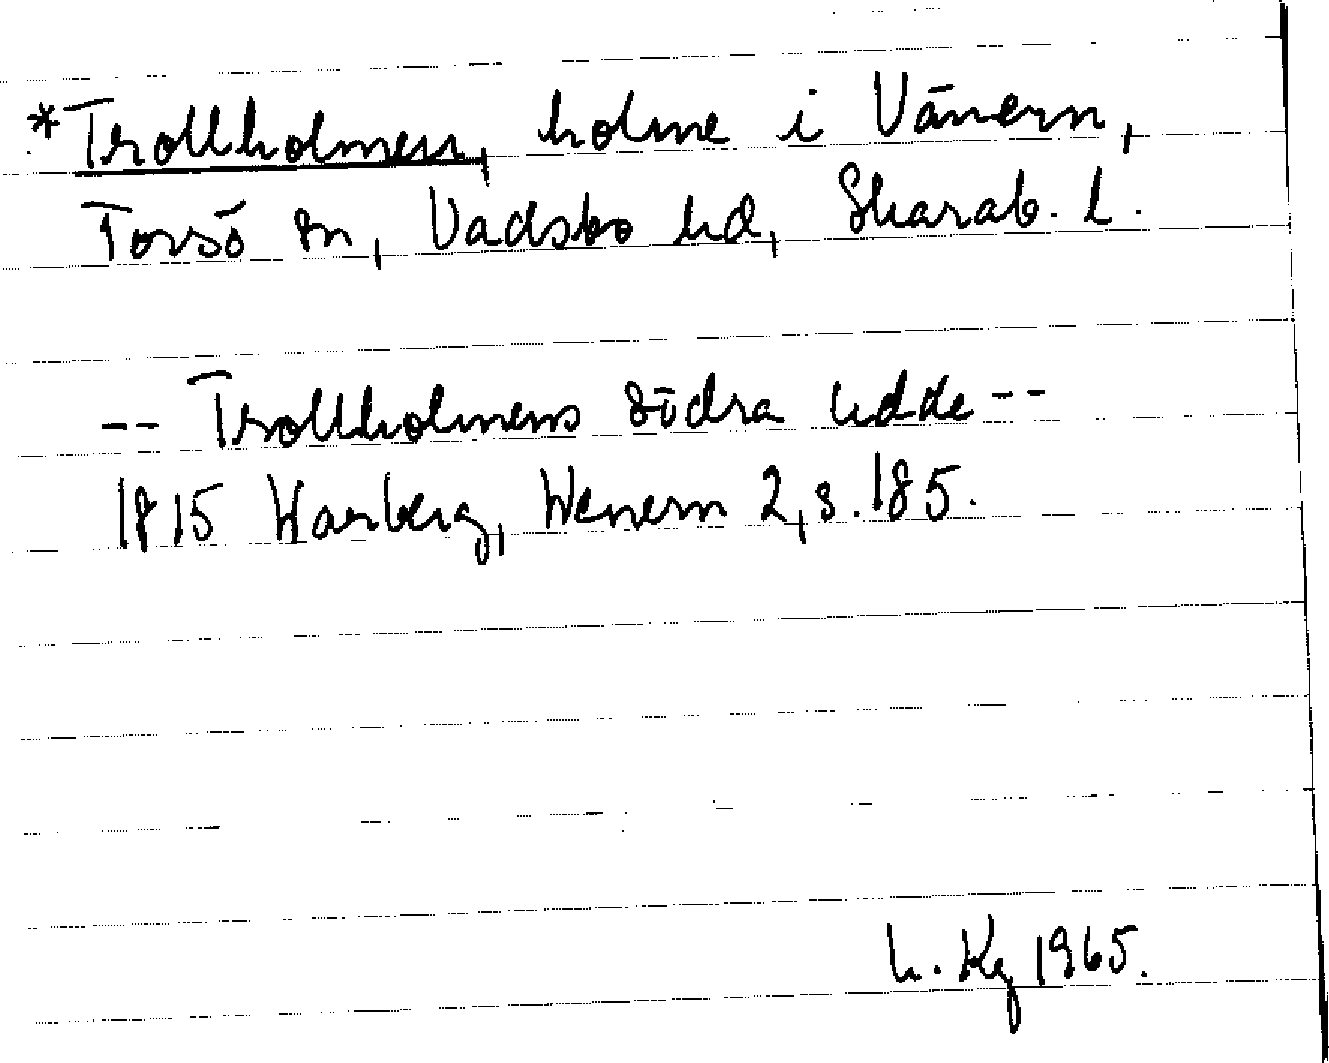 *Trollholmen, holme i Vänern,
Torsö sn, Vadsbo hd, Skarab. l.
-- Trollholmens södra udde --
1815 Warberg, Wenern 2, s. 185.
Kg 1965.